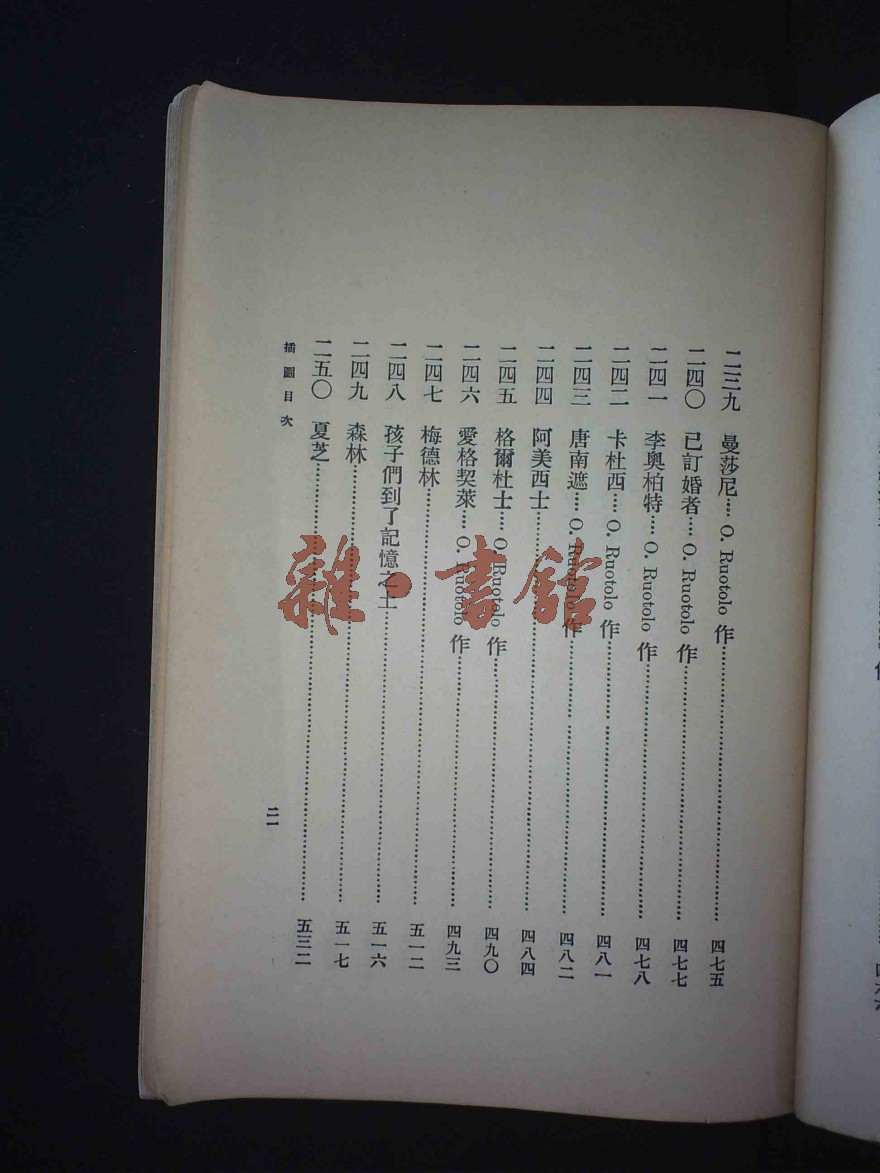 二三九 曼莎尼…… O. Ruotolo 作…… 四七五
二四〇 已訂婚者…… O. Ruotolo 作…… 四七七
二四一 李奧柏特…… O. Ruotolo 作…… 四七八
二四二 卡杜西…… O. Ruotolo 作…… 四八一
二四三 唐南遮…… O. Ruotolo 作…… 四八二
二四四 阿美西士…… 四八四
二四五 格爾杜士…… O. Ruotolo 作…… 四九〇
二四六 愛格契萊…… O. Ruotolo 作…… 四九三
二四七 梅德林…… 五一二
二四八 孩子們到了記憶之土…… 五一六
二四九 森林…… 五一七
二五〇 夏芝…… 五三二
插圖目次
二一
雜·書館